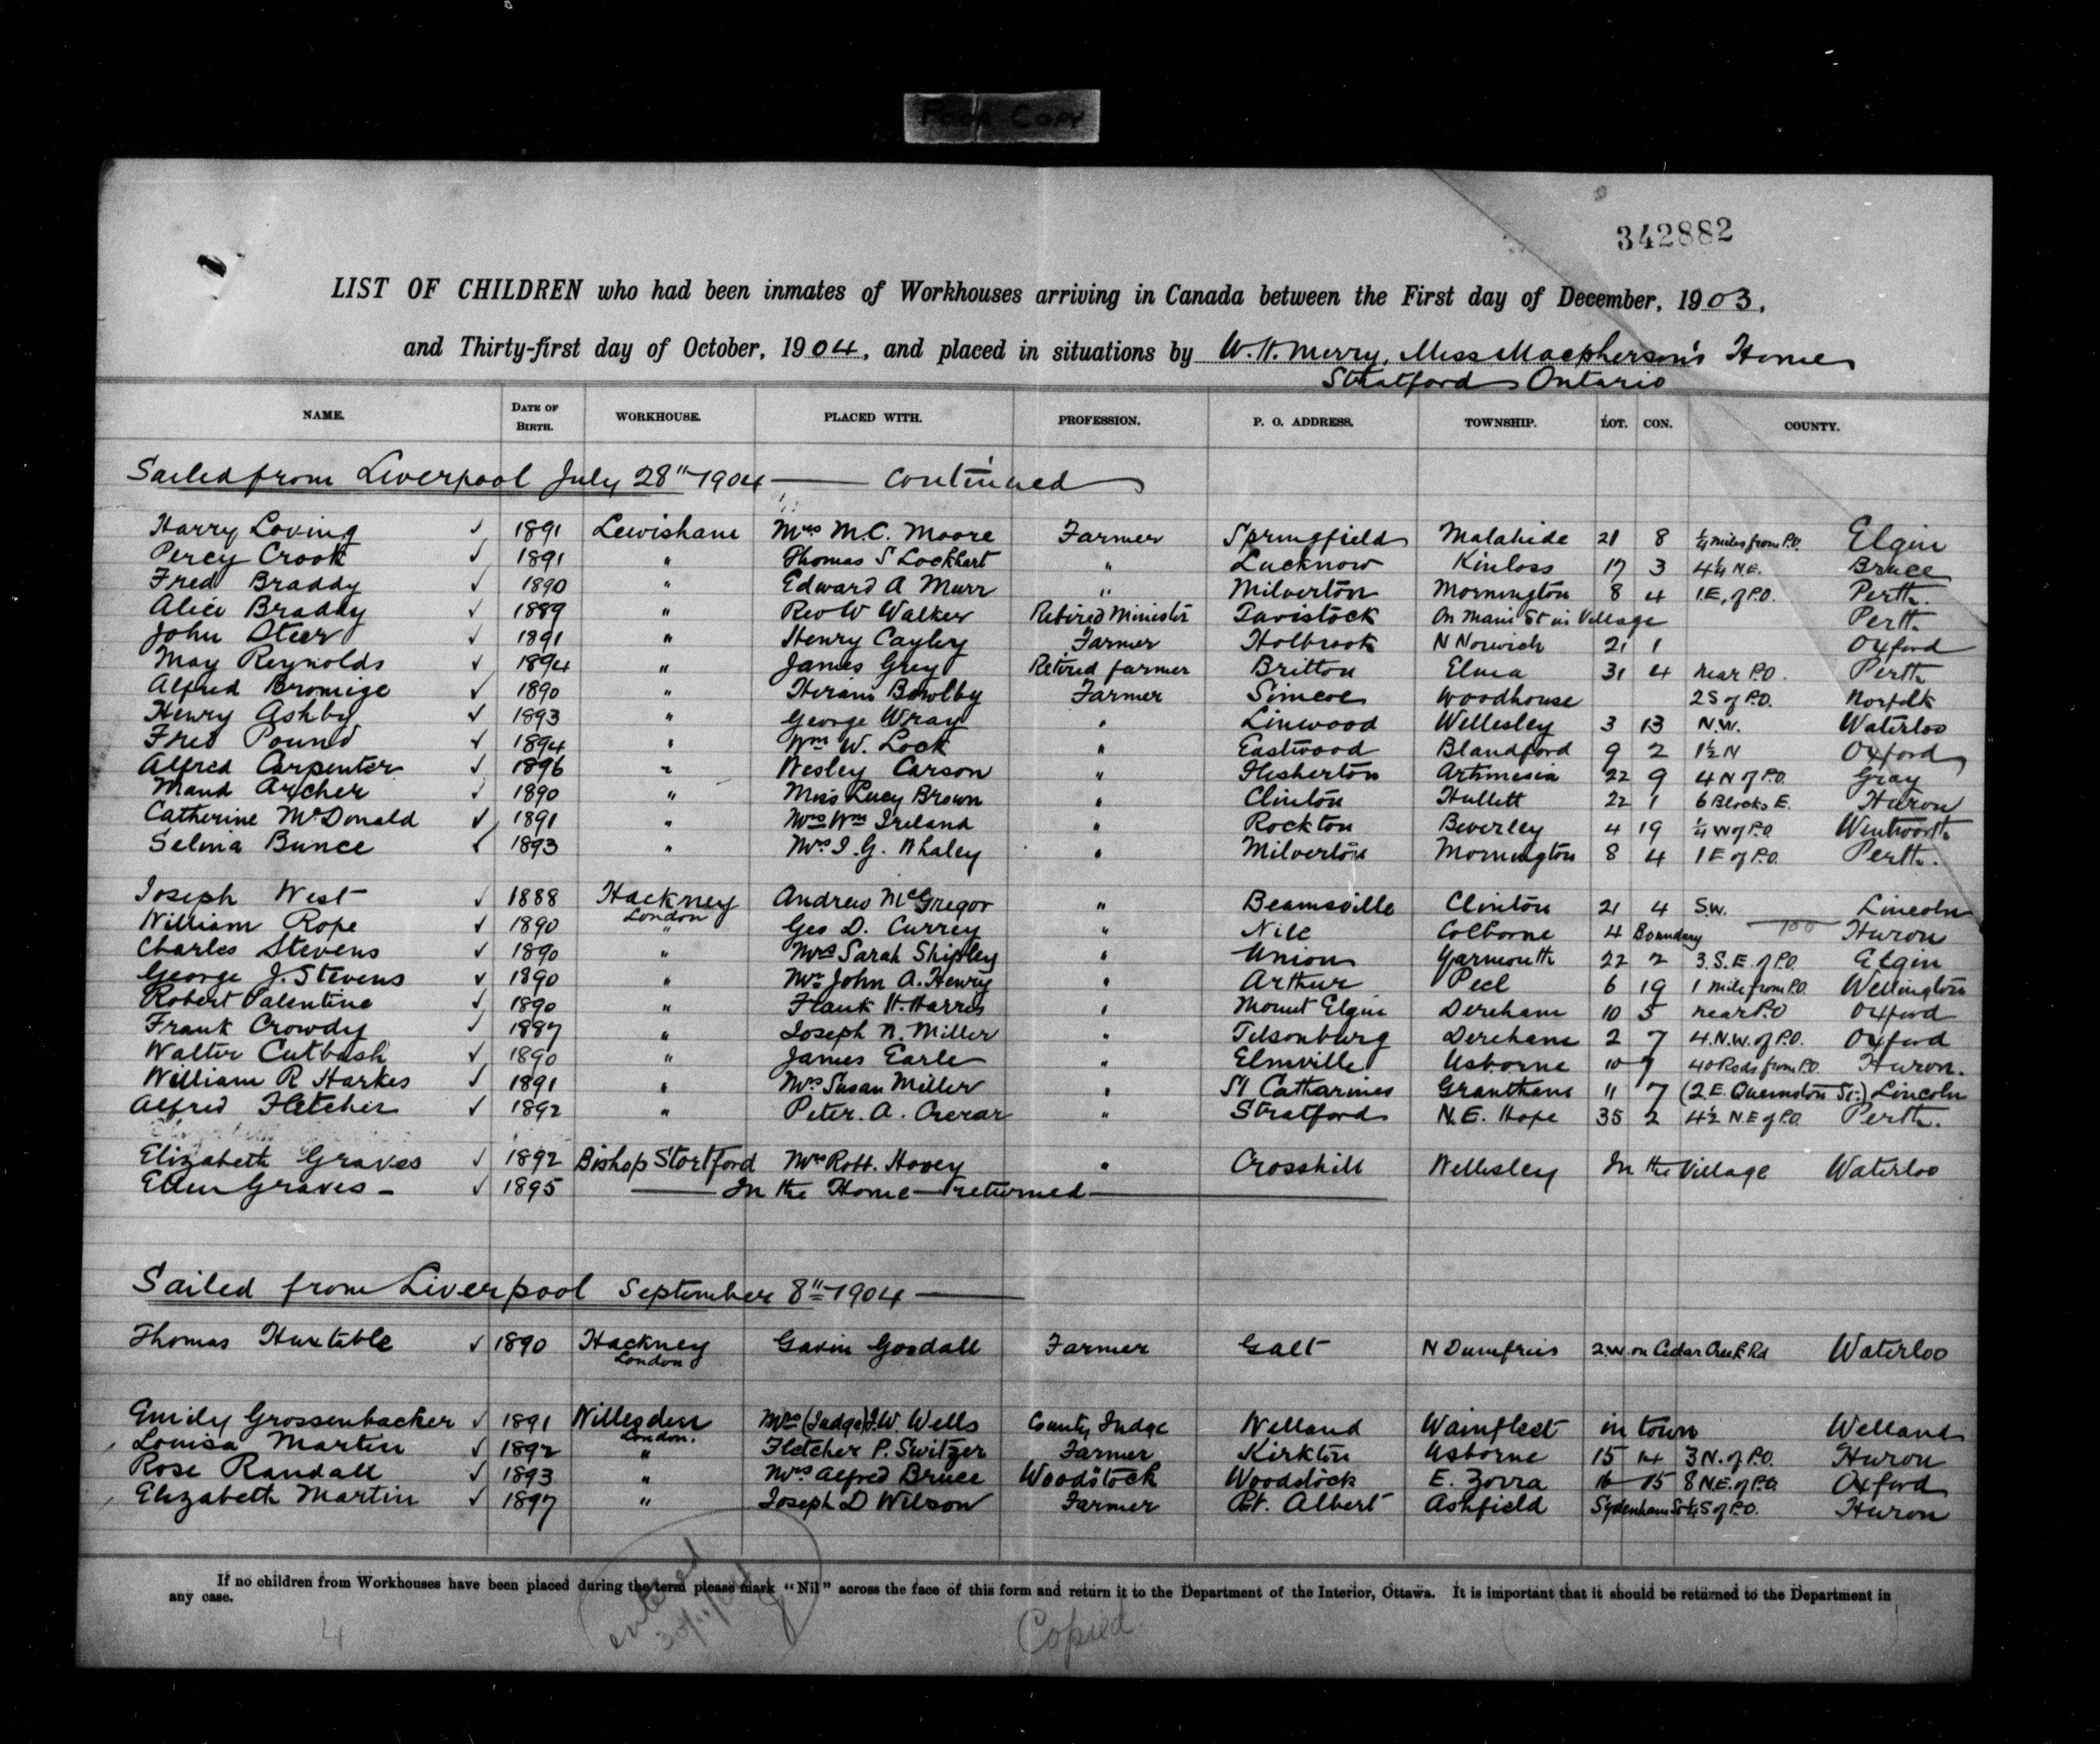 Poor Copy
342882
LIST OF CHILDREN who had been inmates of Workhouses arriving in Canada between the First day of December, 1903,
and Thirty-first day of October, 1904, and placed in situations by W.H. Merry, Miss Macpherson's Home
Stratford Ontario
NAME. DATE OF BIRTH. WORKHOUSE. PLACED WITH. PROFESSION. P. O. ADDRESS. TOWNSHIP. LOT. CON. COUNTY.
Sailed from Liverpool July 28" 1904 — continued
Harry Loving ✓ 1891 Lewisham Mrs M.C. Moore Farmer Springfield Malahide 21 8 ¼ miles from P.O. Elgin
Percy Crook ✓ 1891 " Thomas S Lockhart " Lucknow Kinloss 17 3 4¼ N.E. Bruce
Fred Braddy ✓ 1890 " Edward A Murr " Milverton Mornington 8 4 1.E. of P.O. Perth.
Alice Braddy ✓ 1889 " Rev W Walker Retired Minister Tavistock On Main St in Village Perth
John Steer ✓ 1891 " Henry Cayley Farmer Holbrook N Norwich 21 1 Oxford
May Reynolds ✓ 1894 " James Grey Retired farmer Britton Elma 31 4 near P.O. Perth
Alfred Bromige ✓ 1890 " Hiram Bowlby Farmer Simcoe Woodhouse 2 S of P.O. Norfolk
Henry Ashby ✓ 1893 " George Wray " Linwood Wellesley 3 13 N.W. Waterloo
Fred Pound ✓ 1894 " Wm W. Lock " Eastwood Blandford 9 2 1½ N Oxford
Alfred Carpenter ✓ 1896 " Wesley Carson " Flesherton Artimesia 22 9 4 N of P.O. Gray
Maud Archer ✓ 1890 " Miss Lucy Brown " Clinton Hullett 22 1 6 Blocks E. Huron
Catherine McDonald ✓ 1891 " Mrs Wm Ireland " Rockton Beverley 4 19 ¼ W of P.O Wentworth
Selina Bunce ✓ 1893 " Mrs I.G. Whaley " Milverton Mornington 8 4 1 E of P.O. Perth.
Joseph West ✓ 1888 Hackney London Andrew McGregor " Beamsville Clinton 21 4 S.W. Lincoln
William Rope ✓ 1890 " Geo D. Currey " Nile Colborne 4 Boundary Huron
Charles Stevens ✓ 1890 " Mrs Sarah Shipley " Union Yarmouth 22 2 3.S.E. of P.O. Elgin
George J. Stevens ✓ 1890 " Mr John A. Henry " Arthur Peel 6 19 1 mile from P.O. Wellington
Robert Valentine ✓ 1890 " Frank H. Harris " Mount Elgin Dereham 10 5 near P.O Oxford
Frank Crowdy ✓ 1887 " Joseph N. Miller " Tilsonburg Dereham 2 7 4.N.W. of P.O. Oxford
Walter Cutbash ✓ 1890 " James Earle " Elmville Usborne 10 9 40 Rods from P.O. Huron.
William R Harkes ✓ 1891 " Mrs Susan Miller " St Catharines Grantham 11 7 (2 E. Queenston St.) Lincoln
Alfred Fletcher ✓ 1892 " Peter. A. Crerar " Stratford N.E. Hope 35 2 4½ N.E of P.O. Perth.
Elizabeth Graves ✓ 1892 Bishop Stortford Mrs Robt. Hovey " Crosshill Wellesley In the Village Waterloo
Ellen Graves – ✓ 1895 — In the Home – returned —
Sailed from Liverpool September 8" 1904 —
Thomas Huxtable ✓ 1890 Hackney London Gavin Goodall Farmer Galt N Dumfries 2.W. on Cedar Creek Rd Waterloo
Emily Grossenbacker ✓ 1891 Willesden London. Mrs (Judge) J.W. Wells County Judge Welland Wainfleet in town Welland
Louisa Martin ✓ 1892 " Fletcher P. Switzer Farmer Kirkton Usborne 15 14 3 N. of P.O. Huron
Rose Randall ✓ 1893 " Mrs Alfred Bruce Woodstock Woodstock E. Zorra 16 15 8 N.E. of P.O. Oxford
Elizabeth Martin ✓ 1897 " Joseph D Wilson Farmer Pt. Albert Ashfield Sydenham St ¼ S of P.O. Huron
If no children from Workhouses have been placed during the term please mark "Nil" across the face of this form and return it to the Department of the Interior, Ottawa. It is important that it should be returned to the Department in
any case.
4
entered
30/11/04
Copied